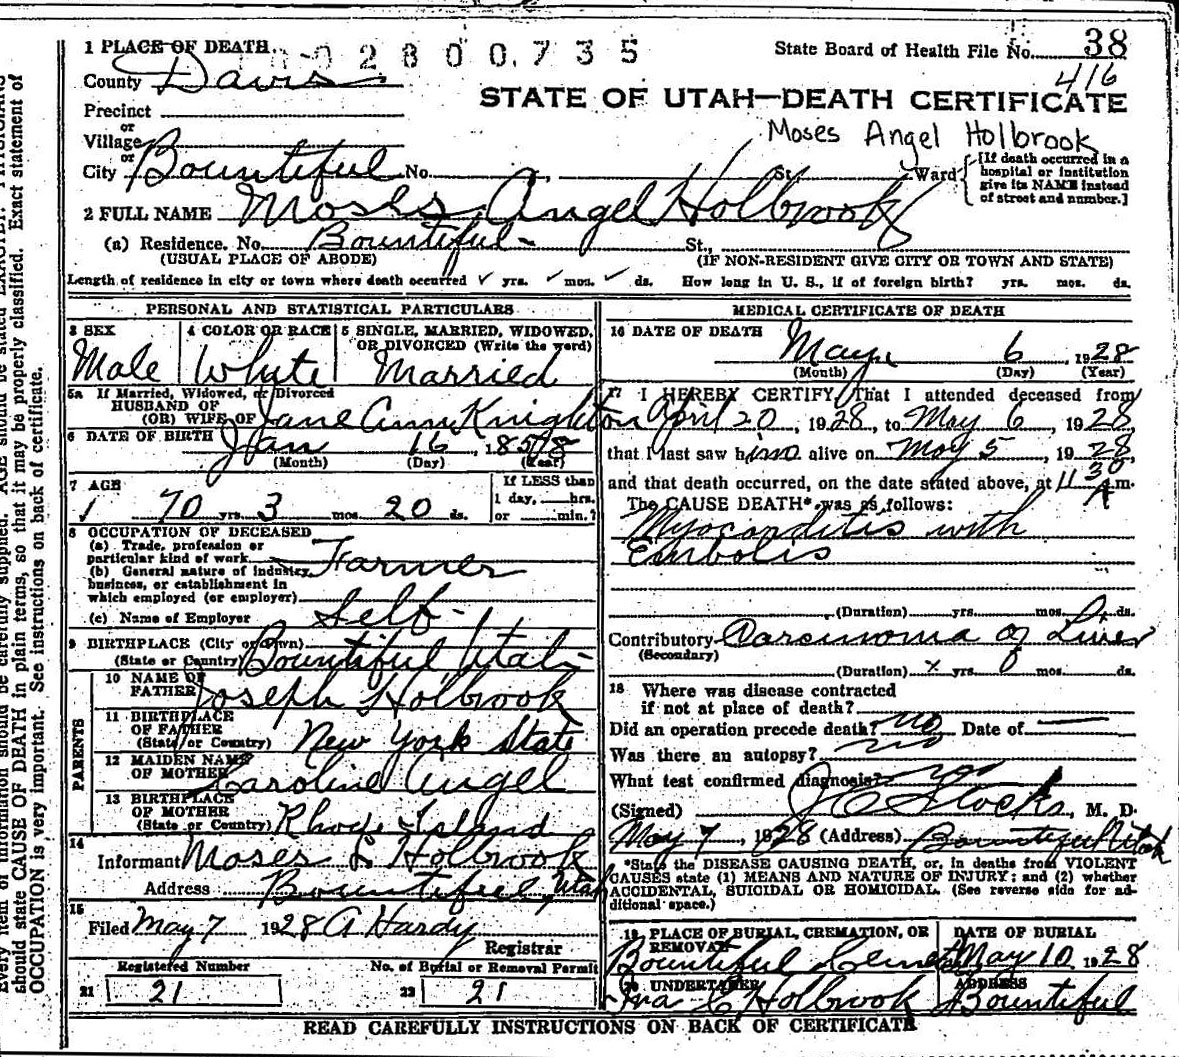 1 PLACE OF DEATH
0 2 8 0 0 7 3 5
State Board of Health File No. 38
416
County Davis
STATE OF UTAH—DEATH CERTIFICATE
Precinct
or
Village
Moses Angel Holbrook
or
City Bountiful No. , St., Ward
[If death occurred in a hospital or institution give its NAME instead of street and number.]
2 FULL NAME Moses Angel Holbrook
(a) Residence. No. Bountiful St.,
(USUAL PLACE OF ABODE) (IF NON-RESIDENT GIVE CITY OR TOWN AND STATE)
Length of residence in city or town where death occurred ✓ yrs. ✓ mos. ✓ ds. How long in U. S., if of foreign birth? yrs. mos. ds.
PERSONAL AND STATISTICAL PARTICULARS
3 SEX
Male
4 COLOR OR RACE
White
5 SINGLE, MARRIED, WIDOWED, OR DIVORCED (Write the word)
Married
5a If Married, Widowed, or Divorced
HUSBAND OF
(OR) WIFE OF Jane Ann Knighton
6 DATE OF BIRTH Jan 16, 1858
(Month) (Day) (Year)
7 AGE
70 yrs. 3 mos. 20 ds.
If LESS than
1 day, hrs.
or min.?
8 OCCUPATION OF DECEASED
(a) Trade, profession or
particular kind of work Farmer
(b) General nature of industry,
business, or establishment in
which employed (or employer)
(c) Name of Employer Self
9 BIRTHPLACE (City or Town)
(State or Country) Bountiful Utah
PARENTS
10 NAME OF
FATHER Joseph Holbrook
11 BIRTHPLACE
OF FATHER
(State or Country) New York State
12 MAIDEN NAME
OF MOTHER Caroline Angel
13 BIRTHPLACE
OF MOTHER
(State or Country) Rhode Island
14
Informant Moses L Holbrook
Address Bountiful, Utah
15
Filed May 7 1928 A Hardy
Registrar
Registered Number
21 21
No. of Burial or Removal Permit
22 21
MEDICAL CERTIFICATE OF DEATH
16 DATE OF DEATH
May 6, 1928
(Month) (Day) (Year)
17 I HEREBY CERTIFY, That I attended deceased from
April 20, 1928, to May 6, 1928,
that I last saw him alive on May 5, 1928,
and that death occurred, on the date stated above, at 11 30 A m.
The CAUSE DEATH* was as follows:
Myocarditis with
Embolis
(Duration) yrs. mos. ds.
Contributory Carcinoma of Liver
(Secondary)
(Duration) yrs. mos. ds.
18 Where was disease contracted
if not at place of death?
Did an operation precede death? no Date of
Was there an autopsy? no
What test confirmed diagnosis?
(Signed) J C Stocks, M. D.
May 7, 1928 (Address) Bountiful Utah
*State the DISEASE CAUSING DEATH, or, in deaths from VIOLENT
CAUSES state (1) MEANS AND NATURE OF INJURY; and (2) whether
ACCIDENTAL, SUICIDAL OR HOMICIDAL. (See reverse side for ad-
ditional space.)
19 PLACE OF BURIAL, CREMATION, OR
REMOVAL
DATE OF BURIAL
Bountiful May 10 1928
20 UNDERTAKER ADDRESS
Ira C Holbrook Bountiful
READ CAREFULLY INSTRUCTIONS ON BACK OF CERTIFICATE
should state CAUSE OF DEATH in plain terms, so that it may be properly classified. Exact statement of
OCCUPATION is very important. See instructions on back of certificate.